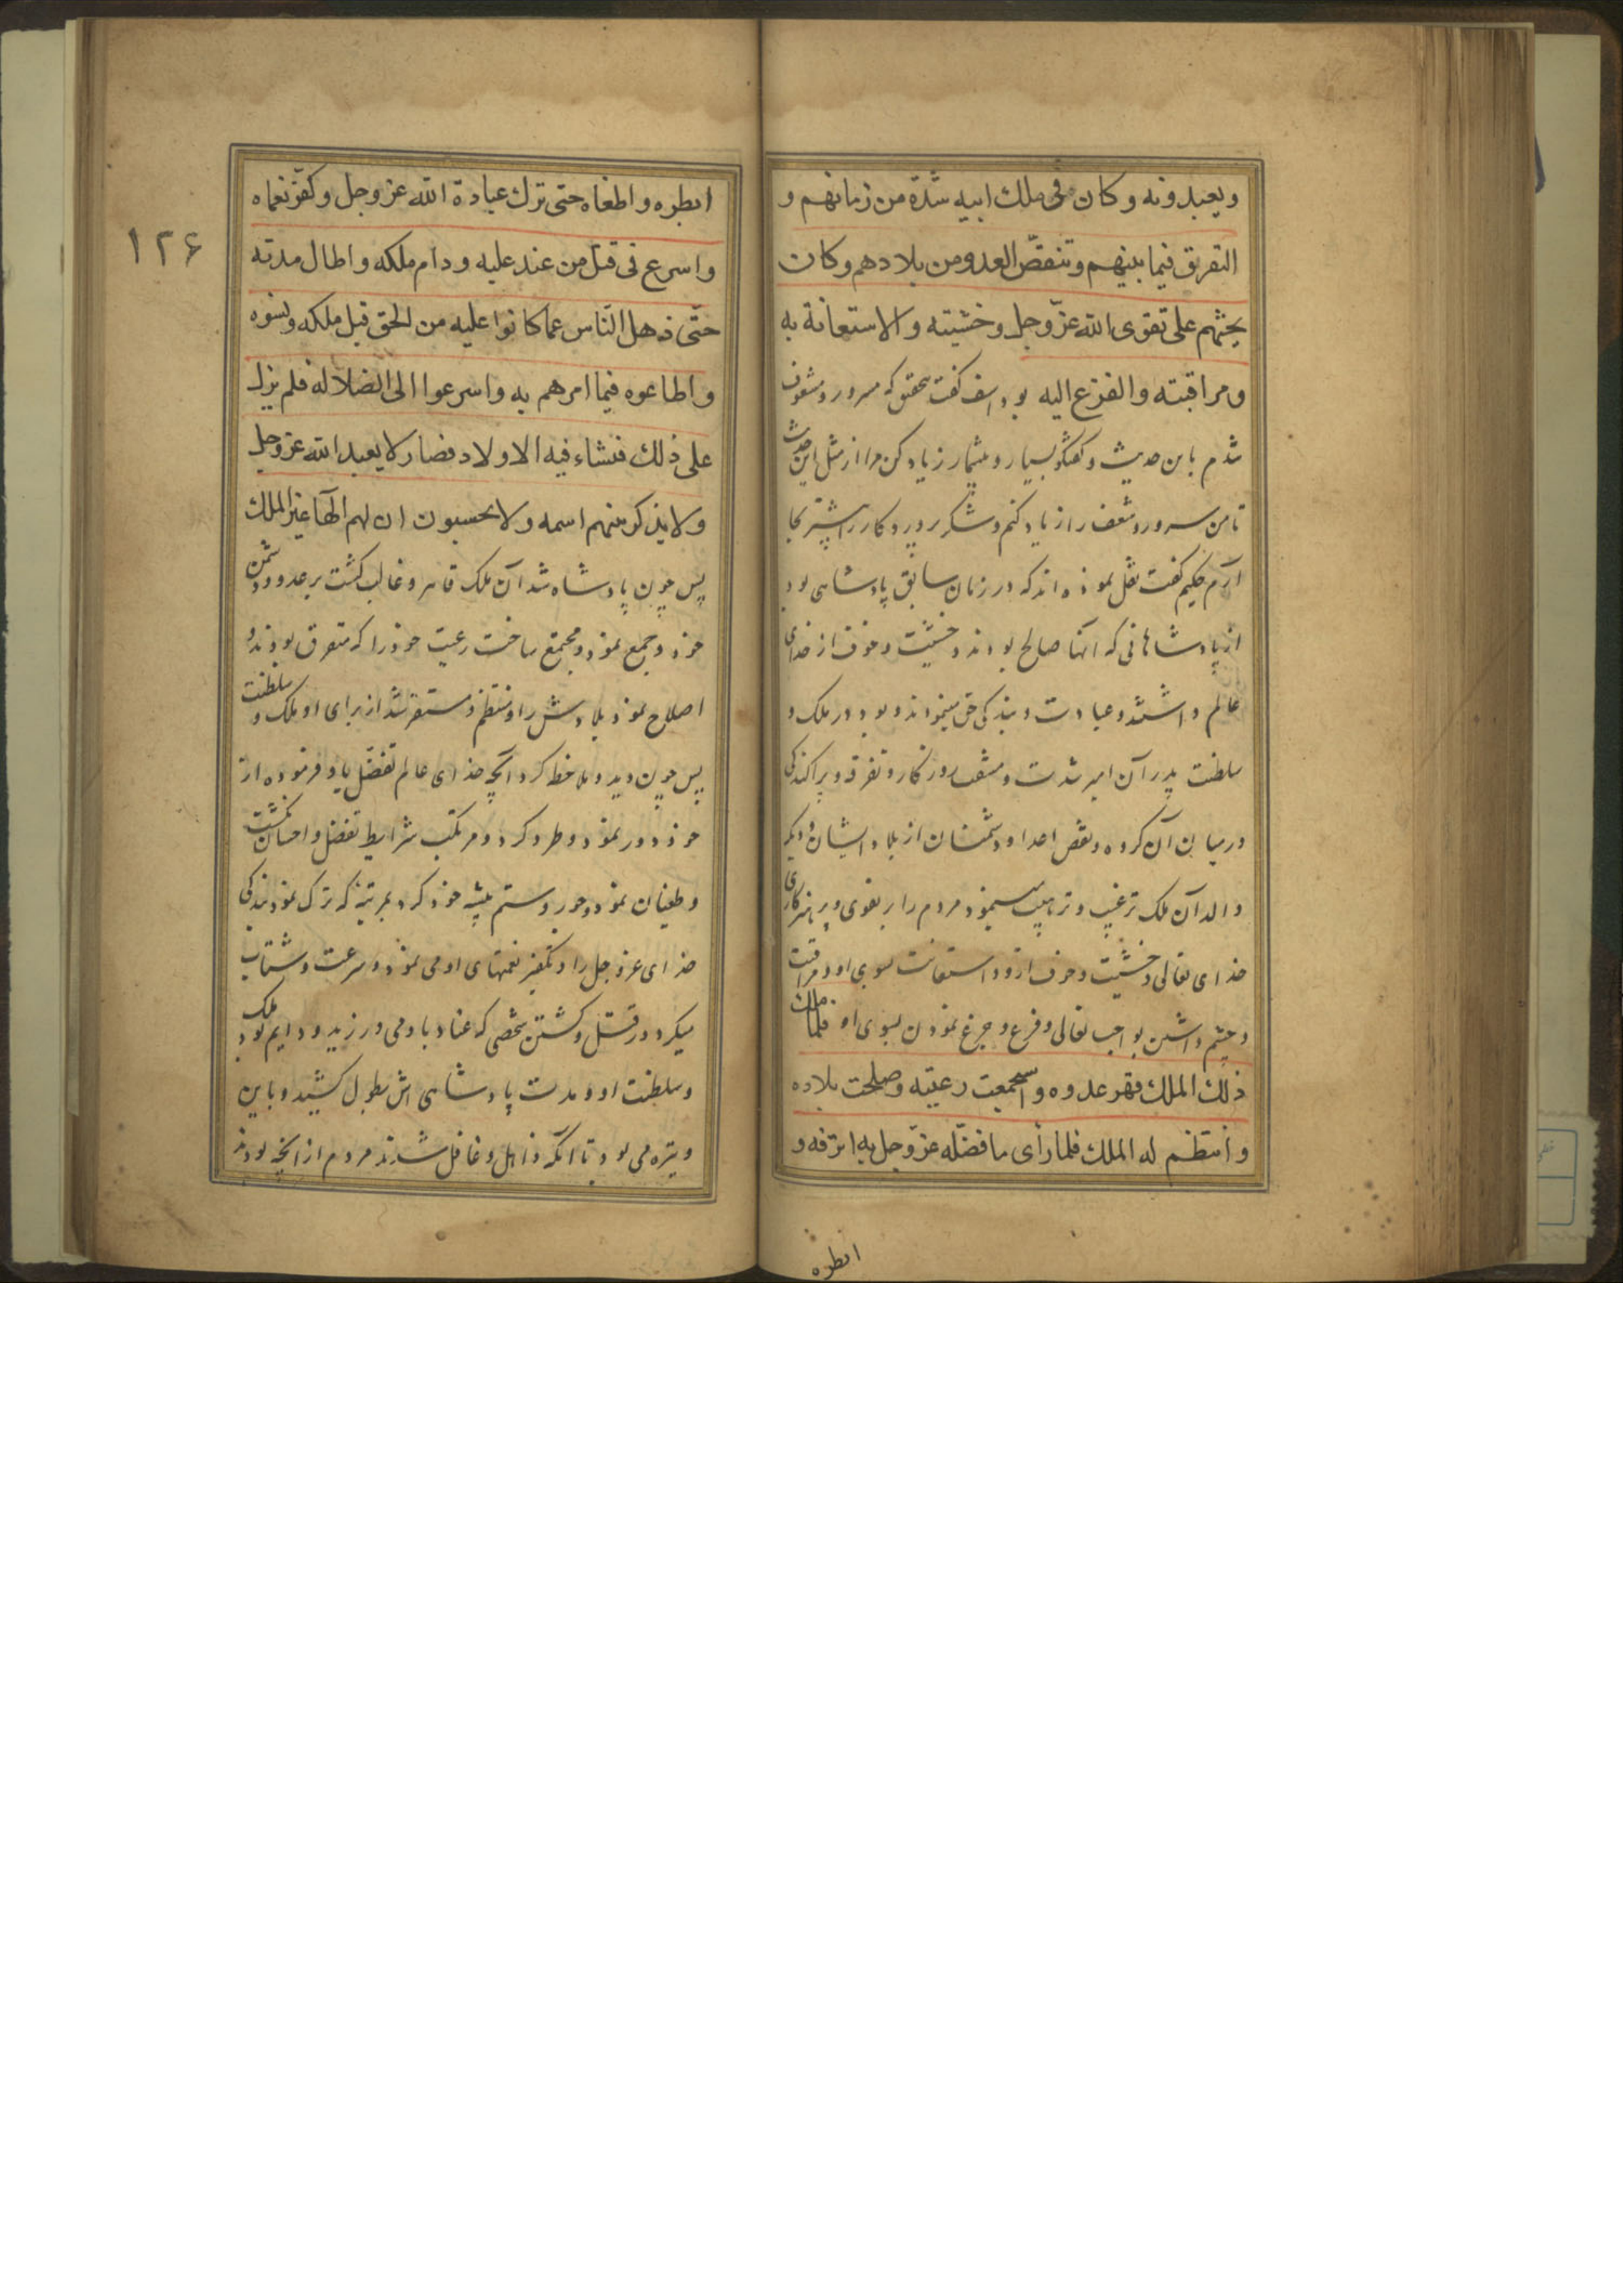 ويعبدونه وكان فى ملك ابيه شدّة من زمانهم و
التفريق فيما بينهم وتنقصّ العدو من بلادهم وكان
يحثهم على تقوى الله عزّوجل وخشيته والاستعانة به
ومراقبته والفزع اليه بوداسف کفت بتحقیق که مسرور و مشعوف
شدم باین حدیث و کفتکو بسیار و بیشمار زیاد کن مرا از مثل این حدیث
تا من سرور و شعف را زیاد کنم و شکر پروردکار را بیشتر بجا
آرم حکیم کفت نقل نموده اند که در زمان سابق پادشاهی بود
از پادشاهانی که آنها صالح بودند و خشیت و خوف از خدای
عالم داشتند و عبادت و بندکی حق مینمودند و بود در ملک و
سلطنت پدر آن امیر شدت و مشقت روزکار و تفرقه و پراکندکی
در میان آن کروه و نقص اعدا و دشمنان از بلاد ایشان و دیکر
والد آن ملک ترغیب و ترهیب مینمود مردم را بر تقوی و پرهیزکاری
خدای تعالی و خشیت و خوف از او و استعانت بسوی او و مراقبت
و چشم داشتن بواجب تعالی و فزع و جزع نمودن بسوی او فلما ملك
ذلك الملك قهر عدوه واستجمعت رعيته وصلحت بلاده
وانتظم له الملك فلما رأى ما فضّله عزّوجل به اترفه و
ابطره
۱۲۶
ابطره واطغاه حتى ترك عبادة الله عزوجل وكفّر نعماه
واسرع فى قتل من عند عليه ودام ملكه واطال مدته
حتّى ذهل النّاس عما كانوا عليه من الحق قبل ملكه ونسوه
واطاعوه فيما امرهم به واسرعوا الى الضلالة فلم يزل
على ذلك فنشاء فيه الاولاد فصار لا يعبد الله عزوجل
ولا يذكر بينهم اسمه ولا يحسبون ان لهم الها غير الملك
پس چون پادشاه شد آن ملک قاهر و غالب کشت بر عدو و دشمن
خود و جمع نمود و مجتمع ساخت رعیت خود را که متفرق بودند و
اصلاح نمود بلادش را و منتظم و مستقر شد از برای او ملک و سلطنت
پس چون دید و ملاحظه کرد آنچه خدای عالم تفضّل باو فرموده از
خود دور نمود و طرد کرد و مرتکب شرایط تفضل و احسان نکشت
و طغیان نمود و جور و ستم پیشه خود کرد بمرتبه که ترک نمود بندکی
خدای عزوجل را و تکفیر نعمتهای او می نمود و سرعت و شتاب
میکرد در قتل و کشتن شخصی که عناد باو می ورزید و دایم بود ملک
و سلطنت او و مدت پادشاهی اش بطول کشید و باین
وتیره می بود تا آنکه ذاهل و غافل شدند مردم از آنچه بودند